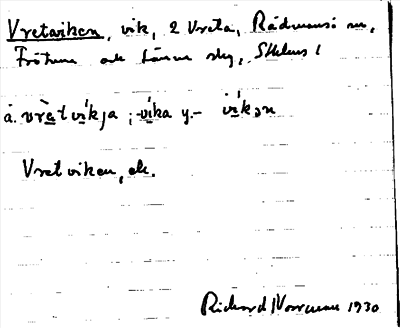 Vretaviken, vik, 2 Vreta, Rådmansö sn,
Frötuna och Länna skg, Sthlms l
å. vrètvíkja ; -víka y.- víkən
Vretviken, ek.
Richard Norrman 1930